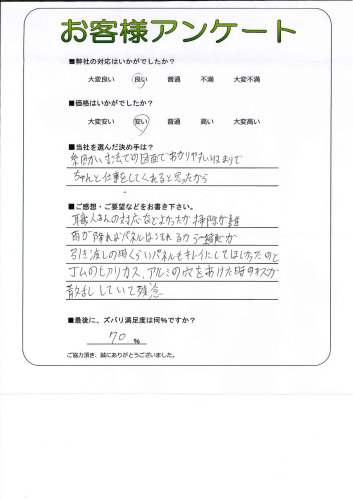 お客様アンケート
■弊社の対応はいかがでしたか?
大変良い 良い 普通 不満 大変不満
■価格はいかがでしたか?
大変安い 安い 普通 高い 大変高い
■当社を選んだ決め手は?
細かい寸法での図面でわかりやすい
ちゃんと仕事をしてくれると思ったから
■ご感想・ご要望などをお書き下さい。
職人さんの対応などよかったが掃除が雑
雨が降ればパネルはぬれるから
引き渡しの時くらいパネルもキレイにしてほしかったのと
ゴムの カス、アルミの穴をあけた時のカスが
散乱していて残念
■最後に、ズバリ満足度は何%ですか?
70 %
ご協力頂き、誠にありがとうございました。